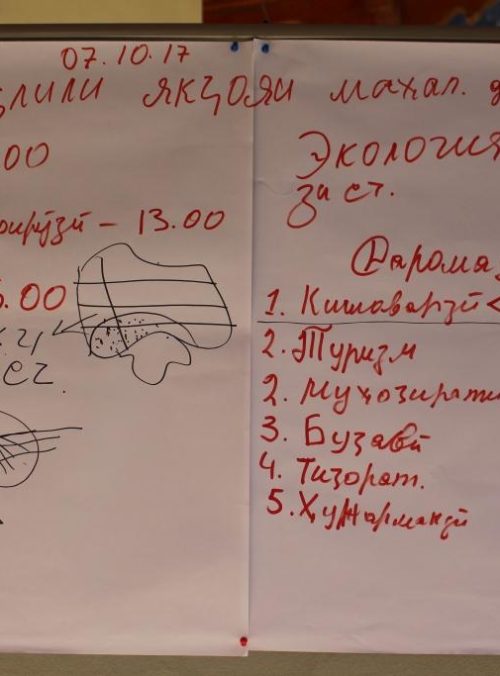 07.10.17
лили якҷояи махал.
00
– 13.00
5.00
ст.
Экология
за ст.
Дарома
1. Кишоварзӣ <
2. Туризм
2. Муҳозирати
3. Бузавӣ
4. Тиҷорат.
5. Ҳунармандӣ